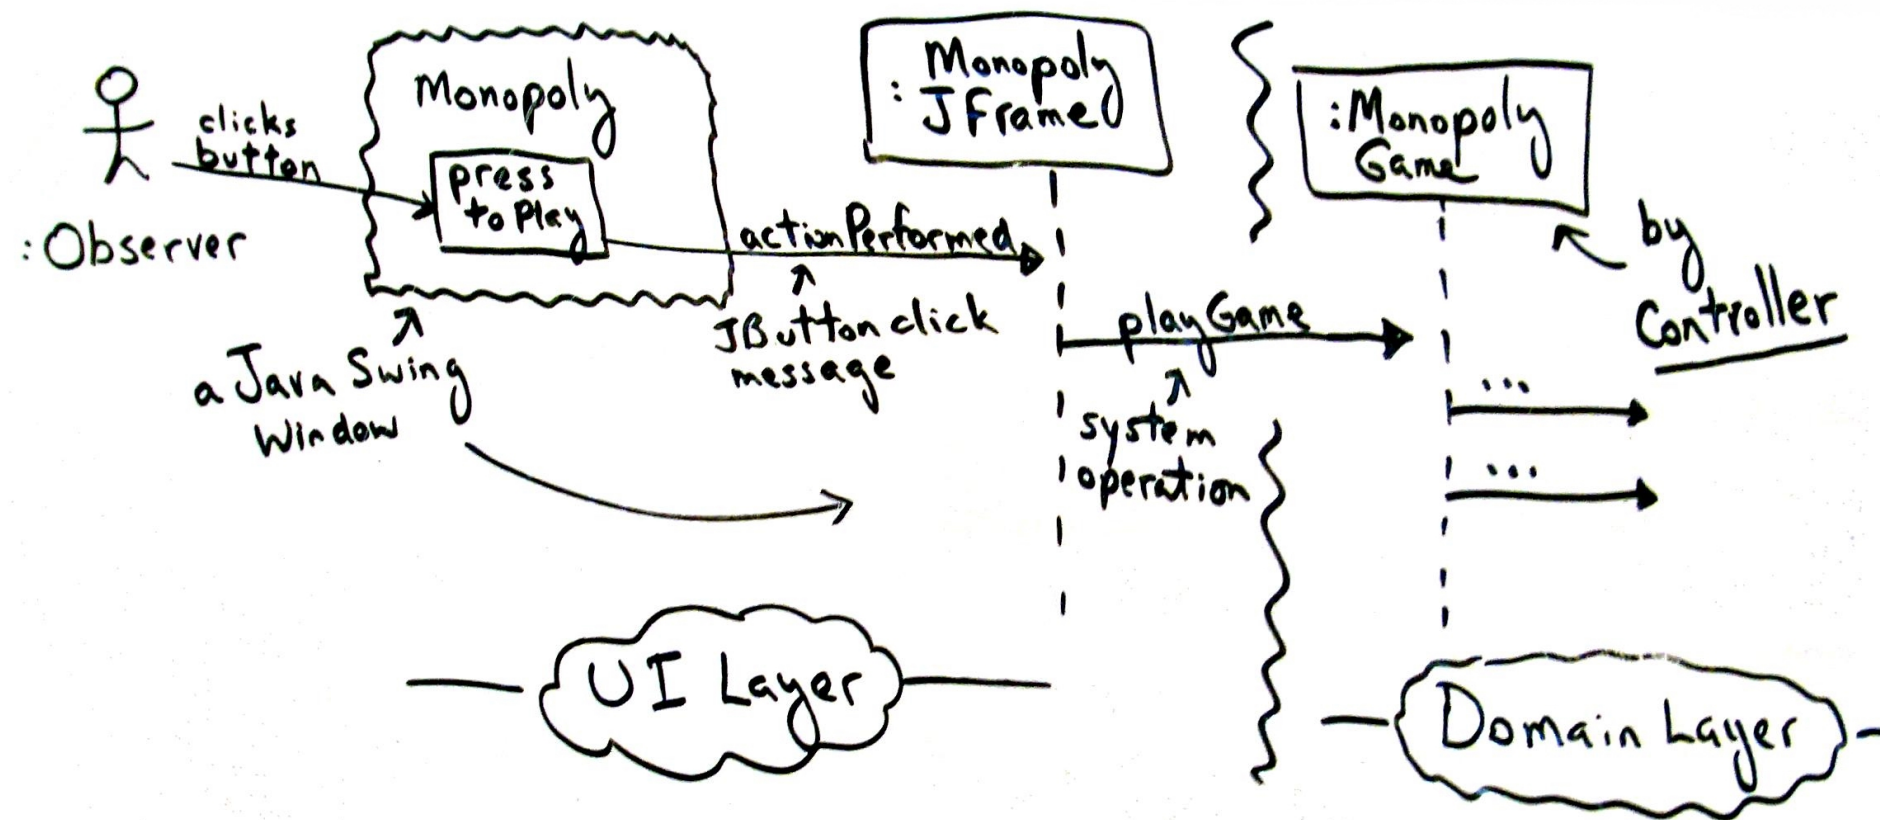 :Observer
clicks
button
Monopoly
press
to Play
a Java Swing
Window
actionPerformed
JButton click
message
Monopoly
: JFrame
playGame
system
operation
:Monopoly
Game
by
Controller
...
...
UI Layer
Domain Layer